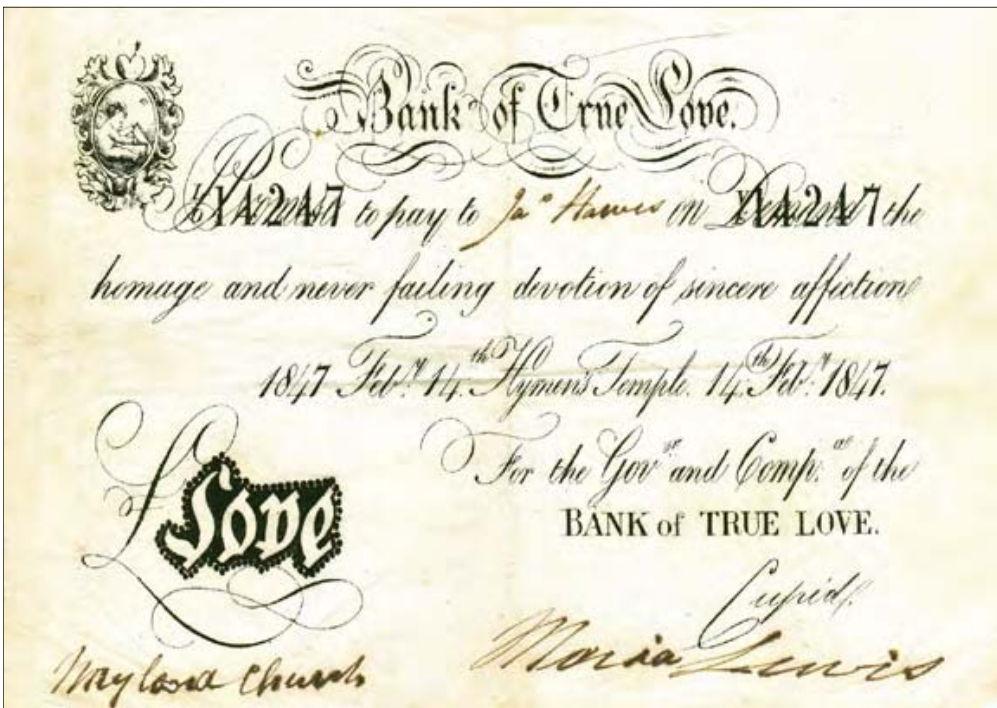 Bank of True Love.
I Promise to pay to Ja.s Hawes on Demand the
homage and never failing devotion of sincere affection
1847 Feb.y 14.th Hymens Temple. 14.th Feb.y 1847.
For the Gov.or and Comp.a of the
BANK of TRUE LOVE.
Love
Cupid.
Maria Lewis
Church